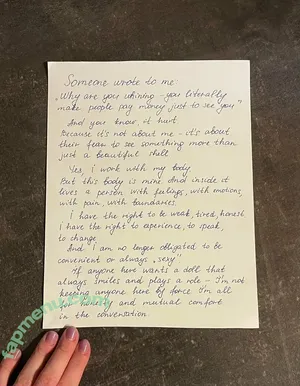 Someone wrote to me:
„Why are you whining – you literally
make people pay money just to see you"
And you know, it hurt
Because it's not about me – it's about
their fear to see something more than
just a beautiful shell
Yes, I work with my body
But this body is mine. And inside it
lives a person with feelings, with emotions,
with pain, with boundaries.
I have the right to be weak, tired, honest
I have the right to experience, to speak,
to change
And I am no longer obligated to be
convenient or always „sexy"
If anyone here wants a doll that
always smiles and plays a role – I'm not
keeping anyone here by force. I'm all
for honesty and mutual comfort
in the conversation.
tapmenu.com